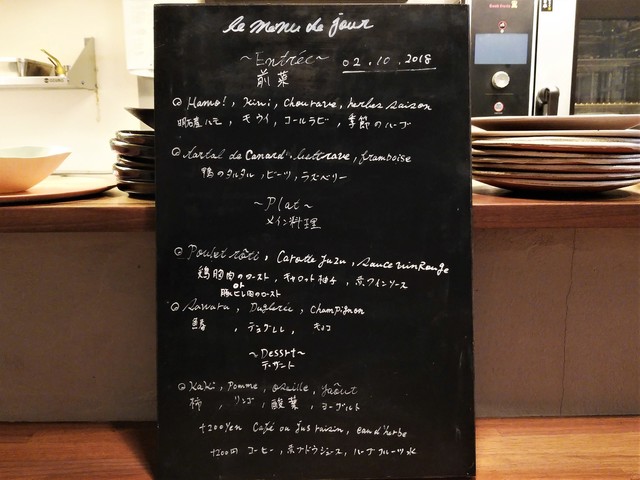 le menu de jour
~Entrée~ 02.10.2018
前菜
Hamo!, Kiwi, Chourave, herbes saison
明石産ハモ, キウイ, コールラビ, 季節のハーブ
tartal de Canard, bettrave, framboise
鴨のタルタル, ビーツ, ラズベリー
~Plat~
メイン料理
Poulet rôti, Carotte yuzu, Sauce vin Rouge
鶏胸肉のロースト, キャロット柚子, 赤ワインソース
or
豚ヒレ肉のロースト
Sawara, Duglérie, Champignon
鰆, デュグレレ, キノコ
~Dessrt~
デザート
Kaki, Pomme, oseille, yaôurt
柿, リンゴ, 酸葉, ヨーグルト
+200yen Café ou jus raisin, eau d'herbe
+200円 コーヒー, 赤ブドウジュース, ハーブフルーツ水